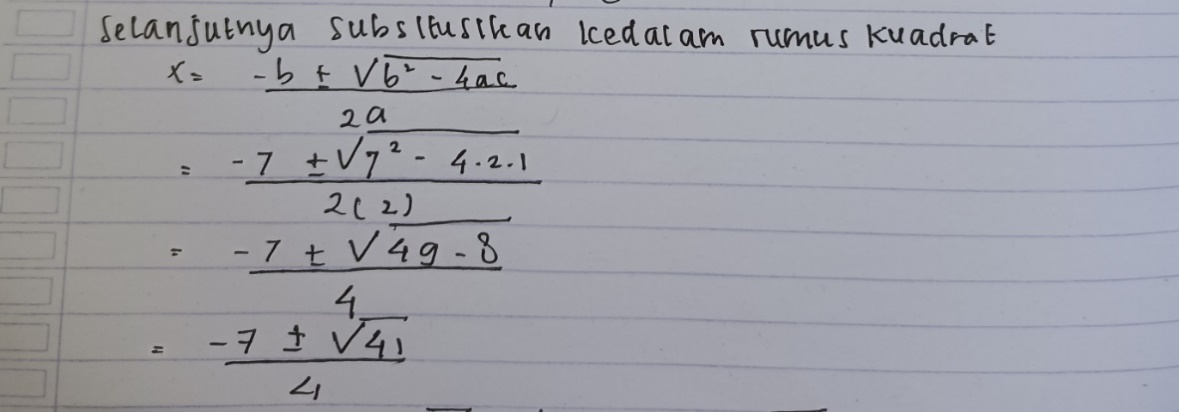 Selanjutnya substitusikan kedalam rumus kuadrat
x = -b ± √b² - 4ac
2a
= -7 ± √7² - 4.2.1
2(2)
= -7 ± √49 - 8
4
= -7 ± √41
4